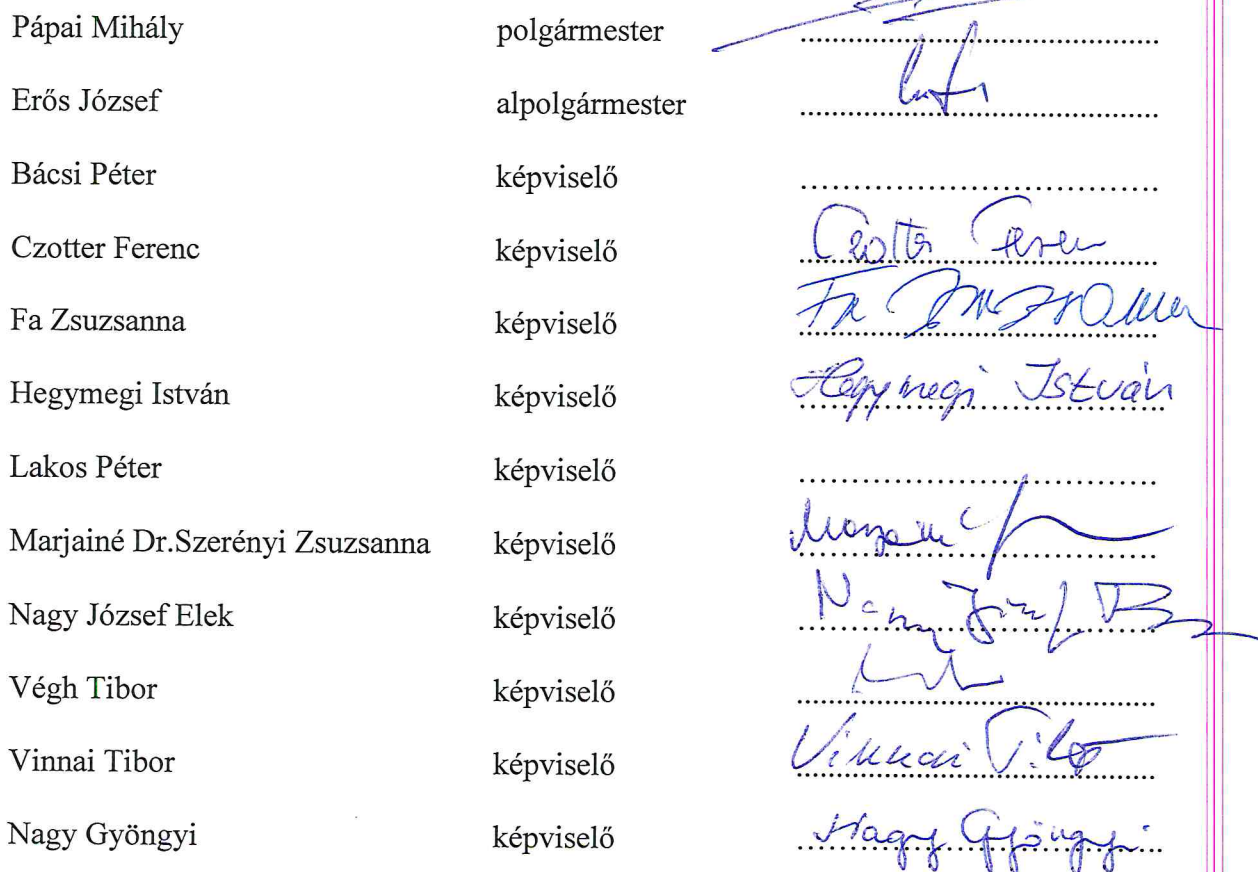 Pápai Mihály polgármester ..............................
Erős József alpolgármester ..............................
Bácsi Péter képviselő ..............................
Czotter Ferenc képviselő Czotter Ferenc
Fa Zsuzsanna képviselő Fa Zsuzsanna
Hegymegi István képviselő Hegymegi István
Lakos Péter képviselő ..............................
Marjainé Dr.Szerényi Zsuzsanna képviselő ..............................
Nagy József Elek képviselő Nagy József
Végh Tibor képviselő ..............................
Vinnai Tibor képviselő Vinnai Tibor
Nagy Gyöngyi képviselő Nagy Gyöngyi